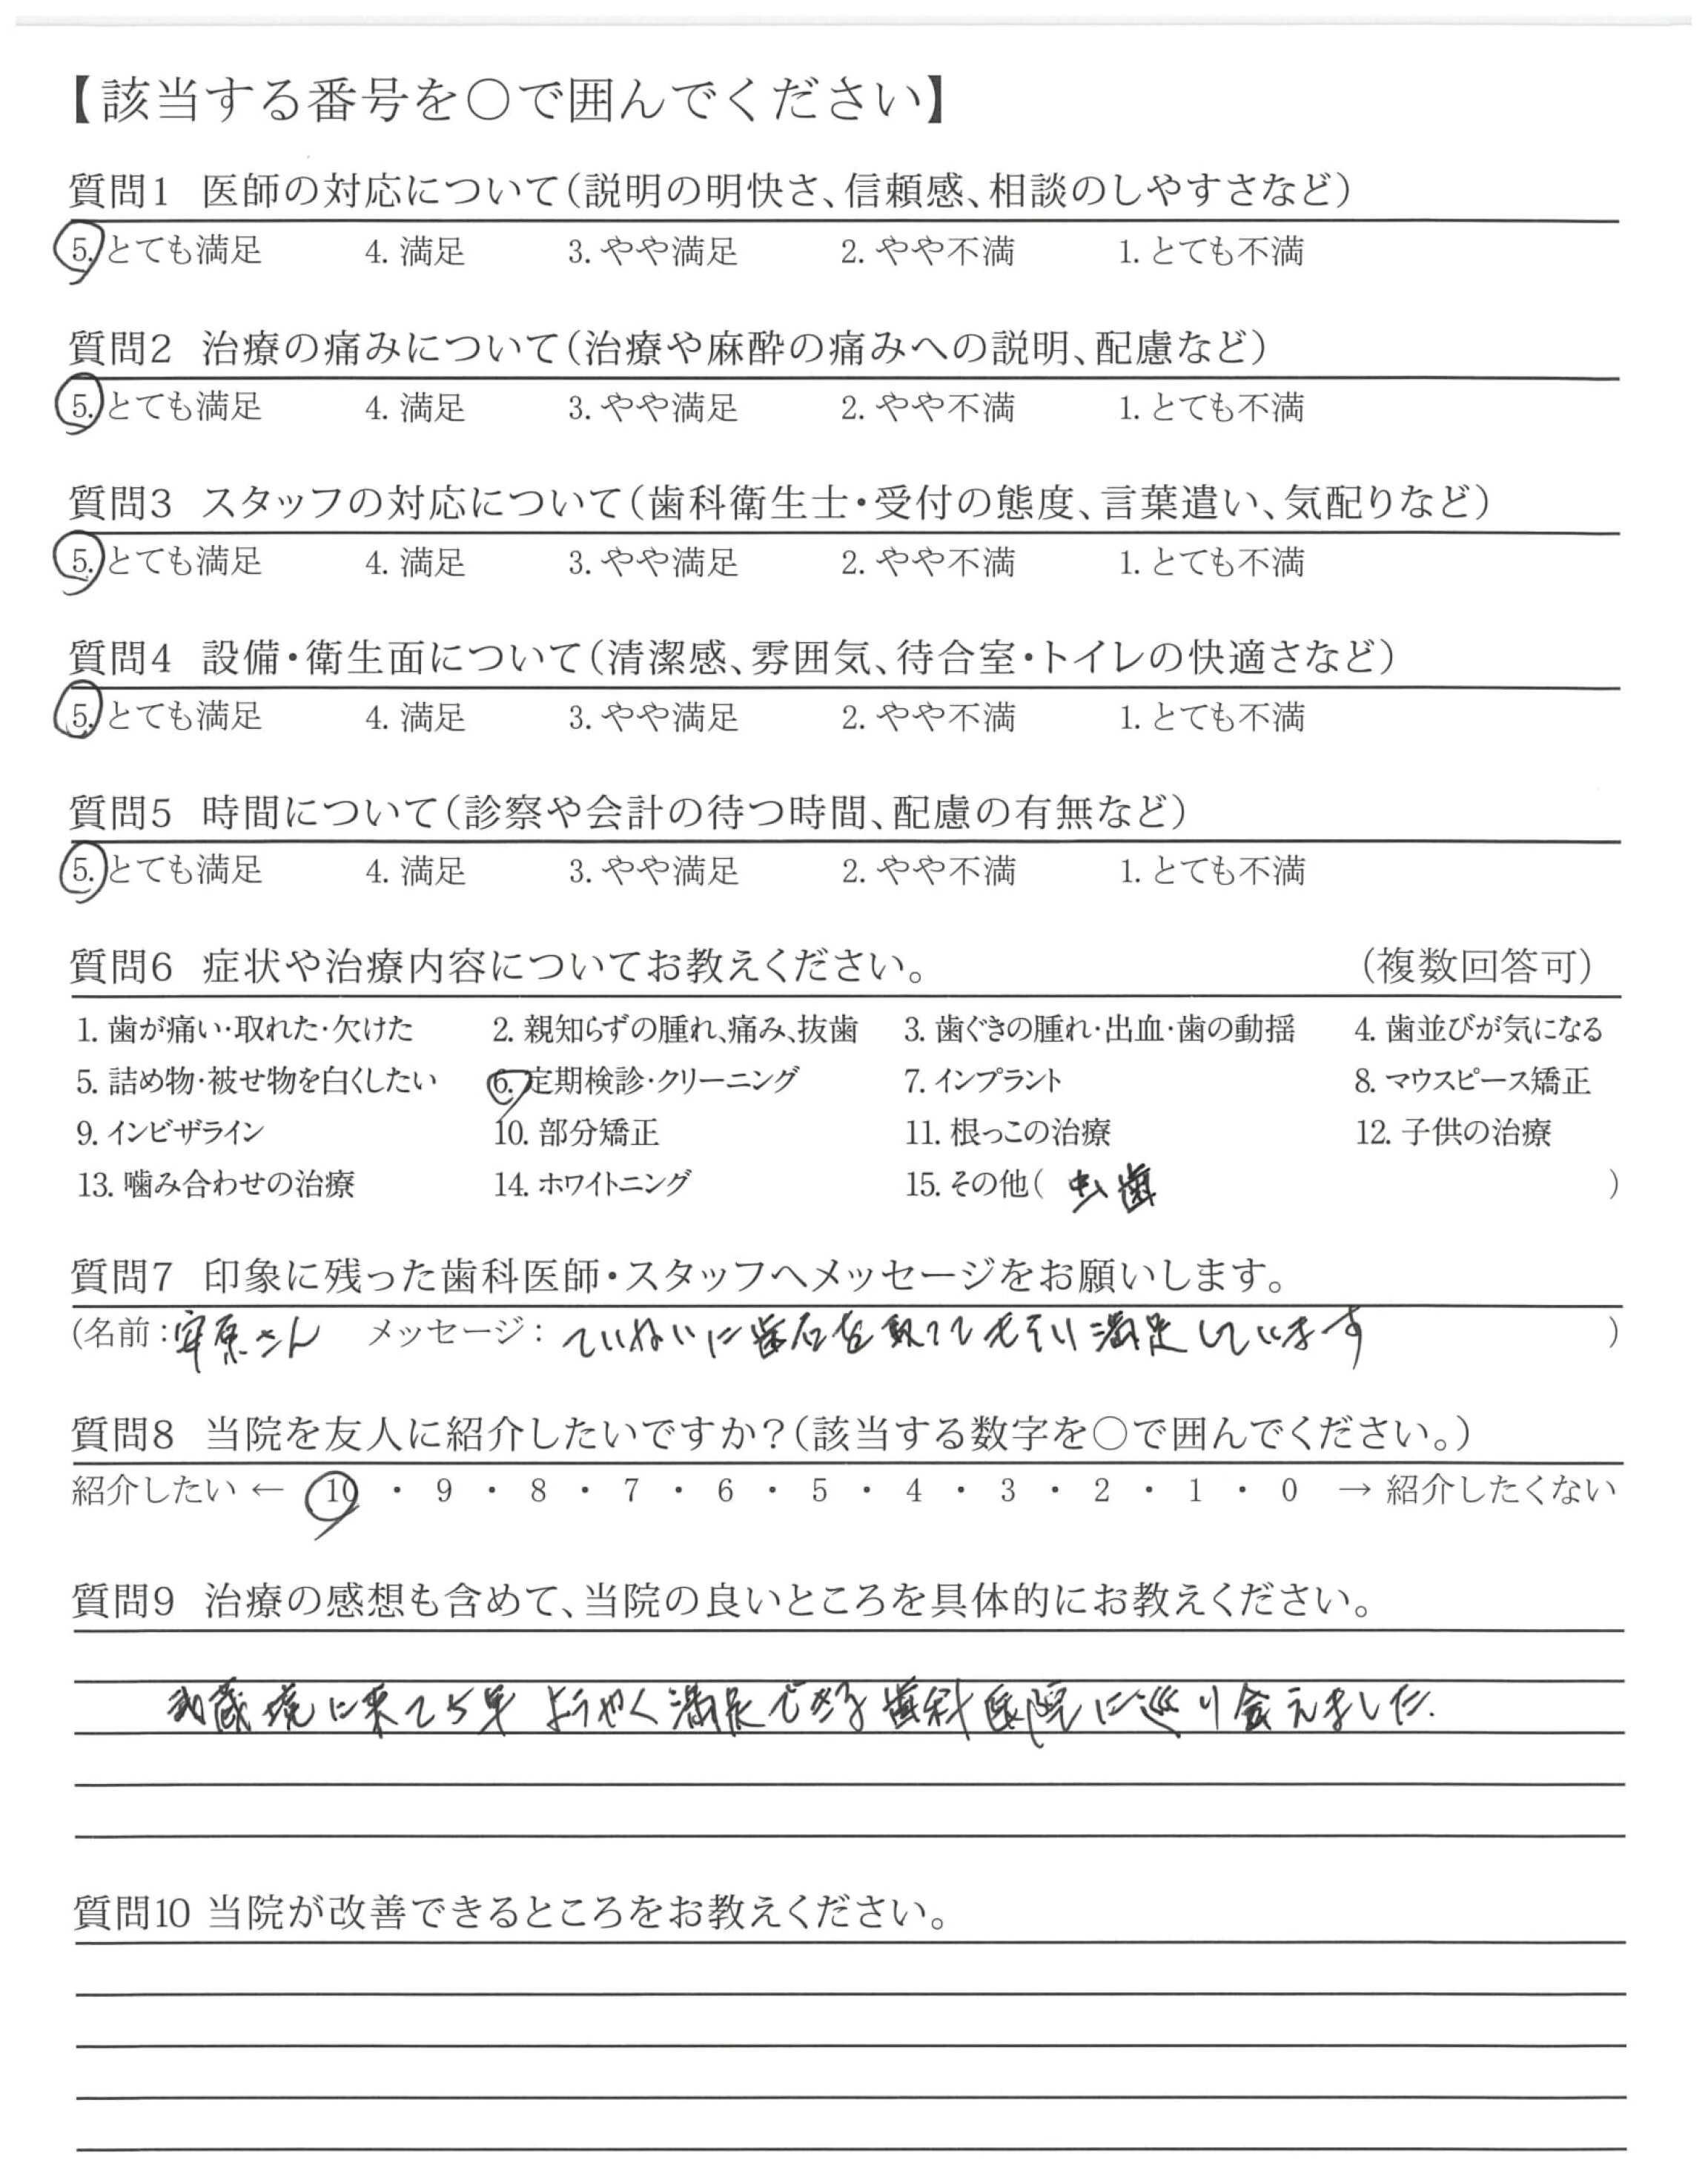 【該当する番号を○で囲んでください】
質問1 医師の対応について（説明の明快さ、信頼感、相談のしやすさなど）
5. とても満足 4. 満足 3. やや満足 2. やや不満 1. とても不満
質問2 治療の痛みについて（治療や麻酔の痛みへの説明、配慮など）
5. とても満足 4. 満足 3. やや満足 2. やや不満 1. とても不満
質問3 スタッフの対応について（歯科衛生士・受付の態度、言葉遣い、気配りなど）
5. とても満足 4. 満足 3. やや満足 2. やや不満 1. とても不満
質問4 設備・衛生面について（清潔感、雰囲気、待合室・トイレの快適さなど）
5. とても満足 4. 満足 3. やや満足 2. やや不満 1. とても不満
質問5 時間について（診察や会計の待つ時間、配慮の有無など）
5. とても満足 4. 満足 3. やや満足 2. やや不満 1. とても不満
質問6 症状や治療内容についてお教えください。 （複数回答可）
1. 歯が痛い・取れた・欠けた 2. 親知らずの腫れ、痛み、抜歯 3. 歯ぐきの腫れ・出血・歯の動揺 4. 歯並びが気になる
5. 詰め物・被せ物を白くしたい 6. 定期検診・クリーニング 7. インプラント 8. マウスピース矯正
9. インビザライン 10. 部分矯正 11. 根っこの治療 12. 子供の治療
13. 噛み合わせの治療 14. ホワイトニング 15. その他（ 虫歯 ）
質問7 印象に残った歯科医師・スタッフへメッセージをお願いします。
（名前： さん メッセージ： ていねいに歯石を取ってもらい満足しています ）
質問8 当院を友人に紹介したいですか？（該当する数字を○で囲んでください。）
紹介したい ← 10 ・ 9 ・ 8 ・ 7 ・ 6 ・ 5 ・ 4 ・ 3 ・ 2 ・ 1 ・ 0 → 紹介したくない
質問9 治療の感想も含めて、当院の良いところを具体的にお教えください。
武蔵境に来て5年 ようやく満足できる歯科医院に巡り会えました.
質問10 当院が改善できるところをお教えください。